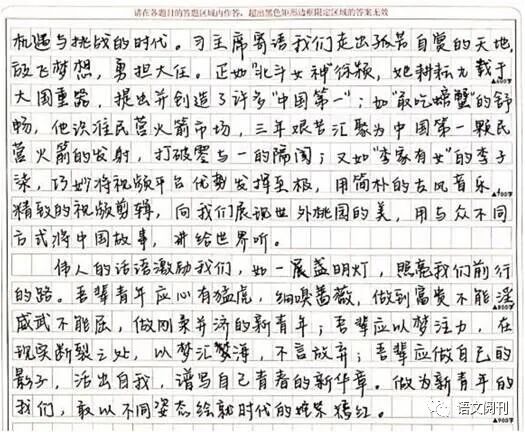 请在各题目的答题区域内作答，超出黑色矩形边框限定区域的答案无效
机遇与挑战的时代。习主席寄语我们走出孤芳自赏的天地，
放飞梦想，勇担大任。正如"北斗女神"徐颖，她耕耘九载于
大国重器，提出并创造了许多"中国第一"；如"敢吃螃蟹"的舒
畅，他深谁民营火箭市场，三年艰苦汇聚为中国第一颗民
营火箭的发射，打破零与一的隔阂；又如"李家有女"的李子
柒，巧妙将视频平台优势发挥至极，用简朴的古风音乐、
精致的视频剪辑，向我们展现世外桃园的美，用与众不同
方式将中国故事，讲给世界听。
伟人的话语激励我们，如一展盏明灯，照亮我们前行
的路。吾辈青年应心有猛虎，细嗅蔷薇，做到富贵不能淫
威武不能屈，做刚柔并济的新青年；吾辈应以梦注力，在
现实断裂之处，以梦汇繁海，不言放弃；吾辈应做自己的
影子，活出自我，谱写自己青春的新华章。做为新青年的
我们，敢以不同姿态绘就时代的姹紫嫣红。
▲800字
▲900字
语文阅刊